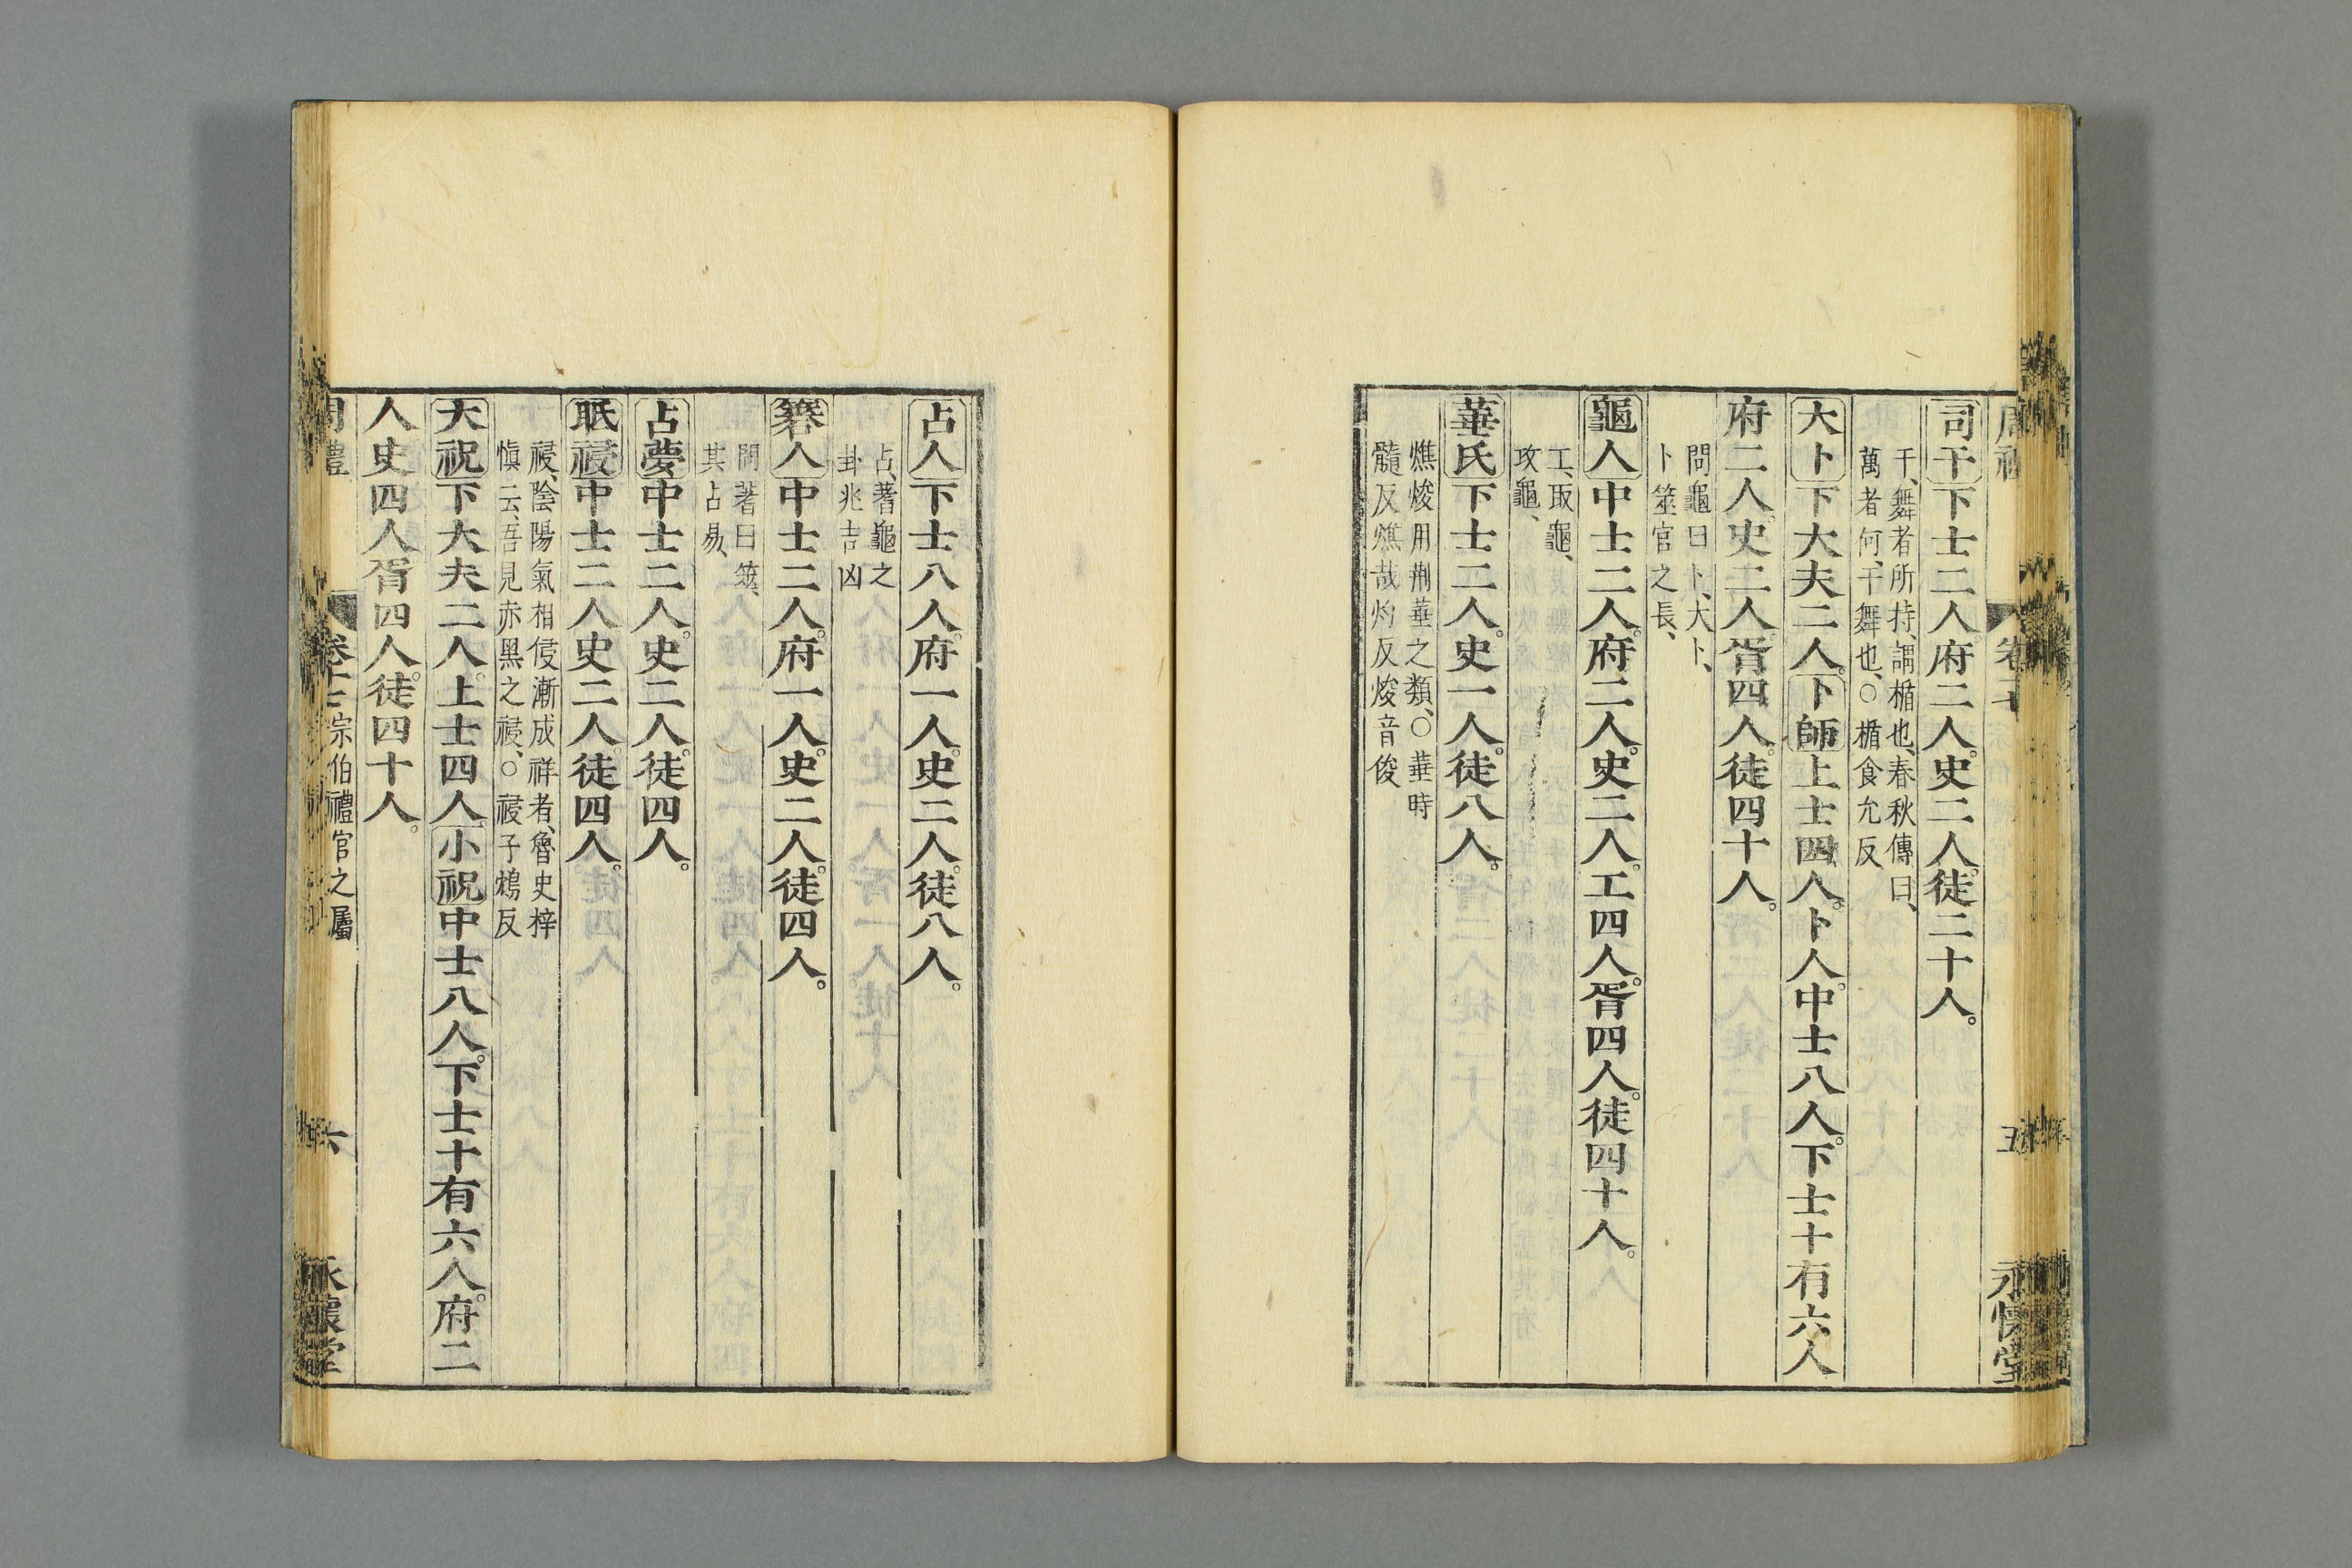 司干下士二人府二人。史二人。徒二十人。
干、舞者所持、謂楯也、春秋傳曰、
萬者何、干舞也、○楯食允反
大卜下大夫二人。卜師上士四人。卜人中士八人。下士十有六人
府二人。史二人。胥四人。徒四十人。
問龜曰卜、大卜、
卜筮官之長、
龜人中士二人。府二人。史二人。工四人。胥四人。徒四十人。
工、取龜、
攻龜、
菙氏下士二人。史一人。徒八人。
燋焌用荆菙之類、○菙時
髓反燋哉灼反焌音俊
占人下士八人。府一人。史二人。徒八人。
占、蓍龜之
卦兆吉凶
簭人中士二人。府一人。史二人。徒四人。
問蓍曰筮、
其占易、
占夢中士二人。史二人。徒四人。
眂祲中士二人史二人。徒四人。
祲、陰陽氣相侵漸成祥者、魯史梓
慎云、吾見赤黑之祲、○祲子鴆反
大祝下大夫二人。上士四人。小祝中士八人。下士十有六人。府二
人史四人胥四人。徒四十人。
周禮 卷十七 宗伯禮官之屬 六 永懷堂